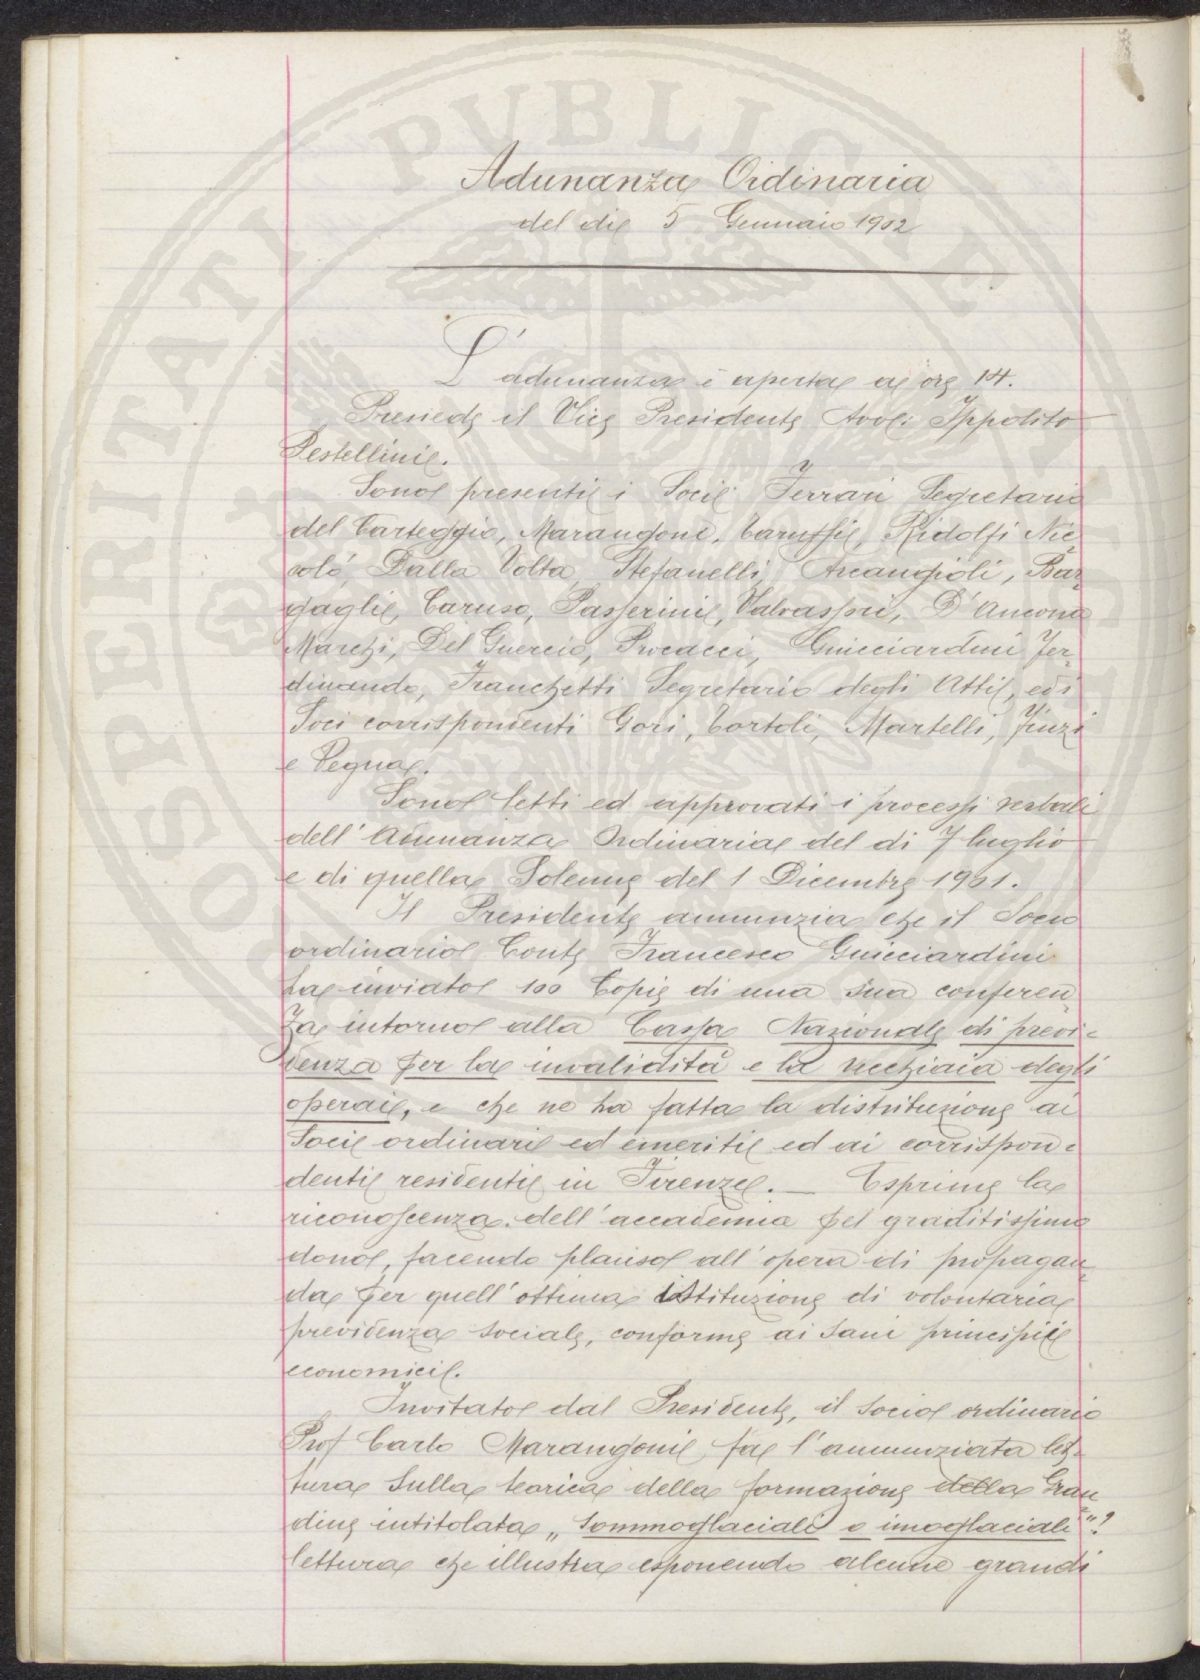 PROSPERITATI PUBLICAE
Adunanza Ordinaria
del di 5 Gennaio 1902
L'adunanza è aperta a ore 14.
Presiede il Vice Presidente Avv. Ippolito
Pestellini.
Sono presenti i Soci Ferrari Segretario
del Carteggio, Marangoni, Caruffi, Ridolfi Nic
colò, Dalla Volta, Stefanelli, Arcangioli, Bar
gagli, Caruso, Passerini, Valvassori, D'Ancona
Marchi, Del Guercio, Procacci, Guicciardini Fer
dinando, Franchetti Segretario degli Atti, ed i
Soci corrispondenti Gori, Bortoli, Martelli, Finzi
e Pegna.
Sono letti ed approvati i processi verbali
dell'Adunanza Ordinaria del di 7 luglio
e di quella Solenne del 1 Dicembre 1901.
Il Presidente annunzia che il Socio
ordinario Conte Francesco Guicciardini
ha inviato 100 Copie di una sua conferen
za intorno alla Cassa Nazionale di previ-
denza per la invalidità e la vecchiaia degli
operai, e che ne ha fatta la distribuzione ai
Soci ordinari ed emeriti ed ai corrispon-
denti residenti in Firenze. — Esprime la
riconoscenza dell'accademia pel graditissimo
dono, facendo plauso all'opera di propagan
da per quell'ottima istituzione di volontaria
previdenza sociale, conforme ai sani principii
economici.
Invitato dal Presidente, il Socio ordinario
Prof Carlo Marangoni fa l'annunziata let-
tura Sulla teorica della formazione della Gran
dine intitolata „ Sommoglaciali o imoglaciali "?
lettura che illustra esponendo alcune grandi